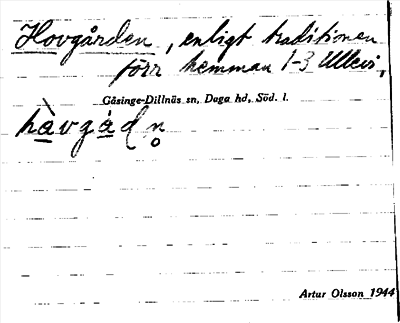 Hovgården, enligt traditionen
förr hemman 1-3 Ullevi,
Gåsinge-Dillnäs sn, Daga hd, Söd. l.
hàvgá̠dn̥
Artur Olsson 1944